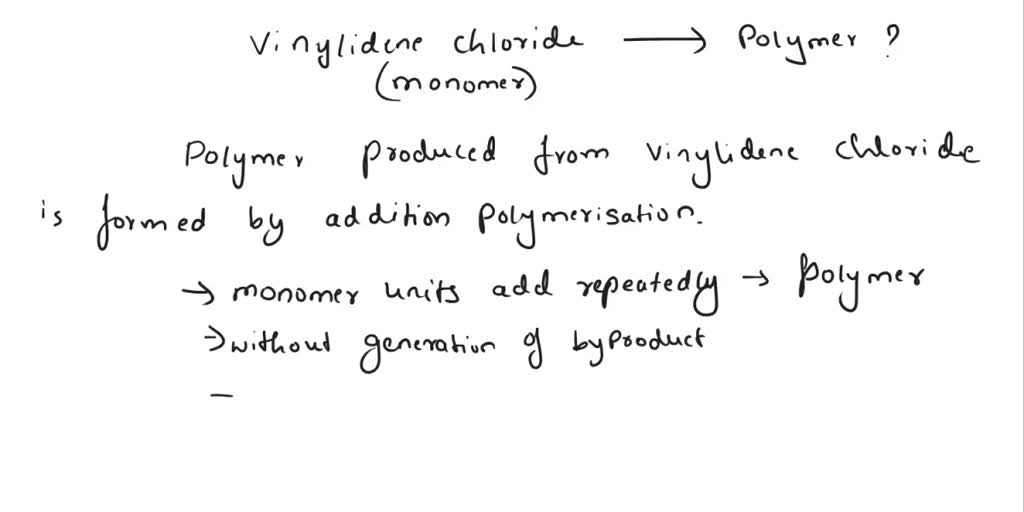 Vinylidene chloride → Polymer ?
(monomer)
Polymer produced from vinylidene chloride
is formed by addition polymerisation.
→ monomer units add repeatedly → polymer
→ without generation of byproduct
–